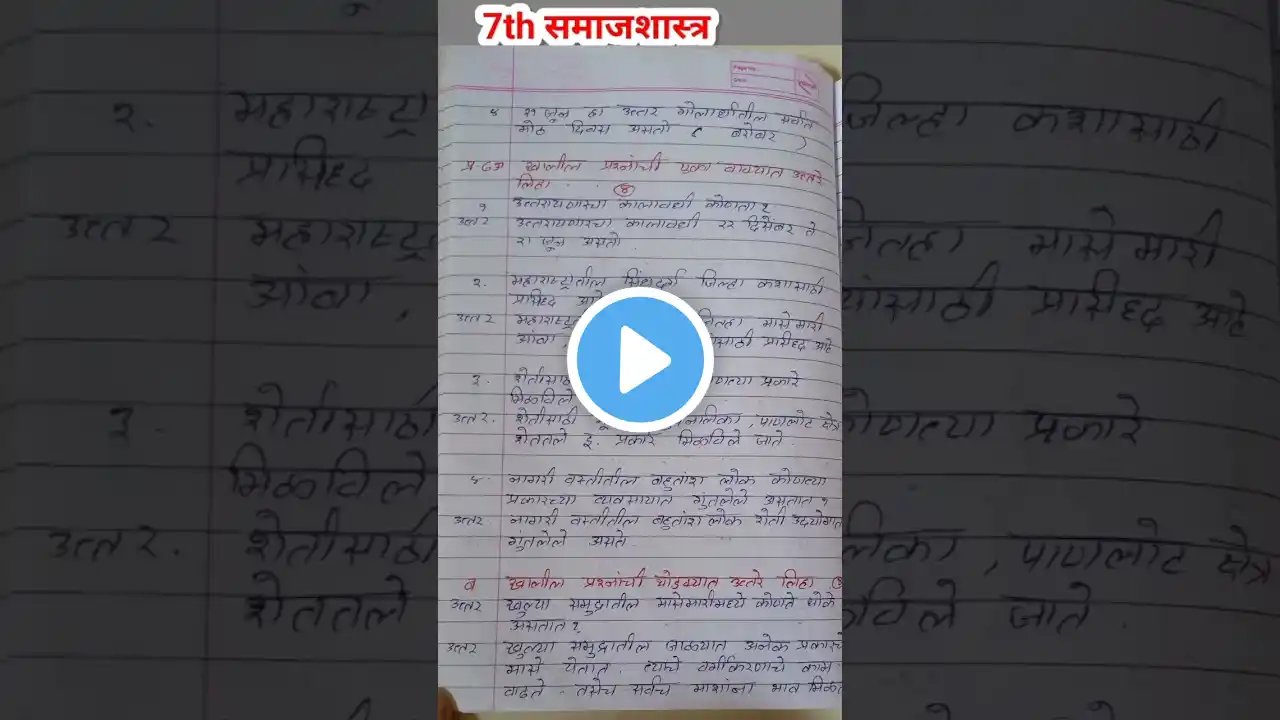 7th समाजशास्त्र
४ २१ जून हा उत्तर गोलार्धातील सर्वात
मोठा दिवस असतो ( बरोबर )
प्र.८अ खालील प्रश्नांची एका वाक्यात उत्तरे
लिहा. (४)
१ उत्तरायणाचा कालावधी कोणता ?
उत्तर उत्तरायणाचा कालावधी २२ डिसेंबर ते
२१ जून असतो.
२. महाराष्ट्रातील सिंधुदुर्ग जिल्हा कशासाठी
प्रसिध्द आहे
उत्तर महाराष्ट्र जिल्हा मासेमारी
आंबा, यांसाठी प्रसिध्द आहे
३. शेतीसाठी कोणत्या प्रकारे
मिळविले
उत्तर. शेतीसाठी , पाणलोट क्षेत्र
शेततले इ. प्रकारे मिळविले जाते.
४. नागरी वस्तीतील बहुतांश लोक कोणत्या
प्रकारच्या व्यवसायात गुंतलेले असतात ?
उत्तर. नागरी वस्तीतील बहुतांश लोक शेती उदयोगात
गुंतलेले असते
ब खालील प्रश्नांची थोडक्यात उत्तरे लिहा.
उत्तर खुल्या समुद्रातील मासेमारीमध्ये कोणते धोके
असतात ?
उत्तर खुल्या समुद्रातील जाळ्यात अनेक प्रकारचे
मासे येतात. त्याचे वर्गीकरणाचे काम
वाढते. तसेच सर्वच माशांना भाव मिळत